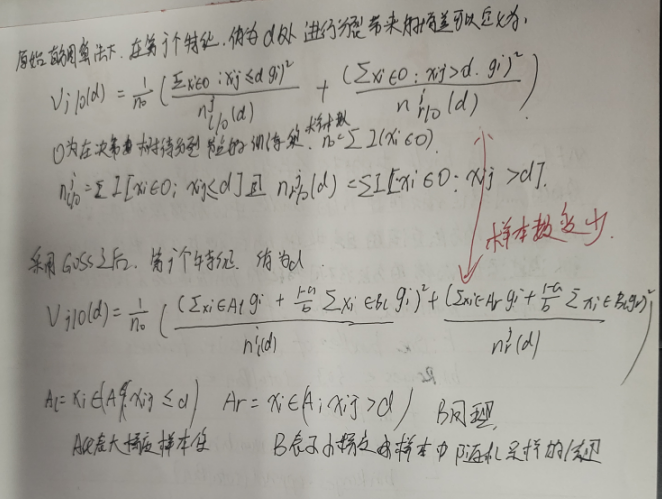 原始的用算法下,在第j个特征,值为d处 进行分裂带来的增益可以定义为:
V_{j|O}(d) = \frac{1}{n_O} ( \frac{(Σxi∈O: xij≤d gi)^2}{n^j_{l|O}(d)} + \frac{(Σxi∈O: xij>d gi)^2}{n^j_{r|O}(d)} )
O为在决策树待分裂节点的训练集, 样本数 n_O = Σ I(xi∈O)
n^j_{l|O} = Σ I[xi∈O; xij≤d] 且 n^j_{r|O}(d) = Σ I[xi∈O: xij >d].
样本数变少.
采用GOSS之后, 第j个特征, 值为d.
V_{j|O}(d) = \frac{1}{n_O} ( \frac{(Σxi∈Al gi + \frac{1-a}{b} Σxi∈Bl gi)^2}{n^j_l(d)} + \frac{(Σxi∈Ar gi + \frac{1-a}{b} Σxi∈Br gi)^2}{n^j_r(d)} )
Al = xi∈(A; xij ≤ d) Ar = xi∈(A; xij >d) B同理,
大梯度样本 B表示小梯度 样本中随机采样的